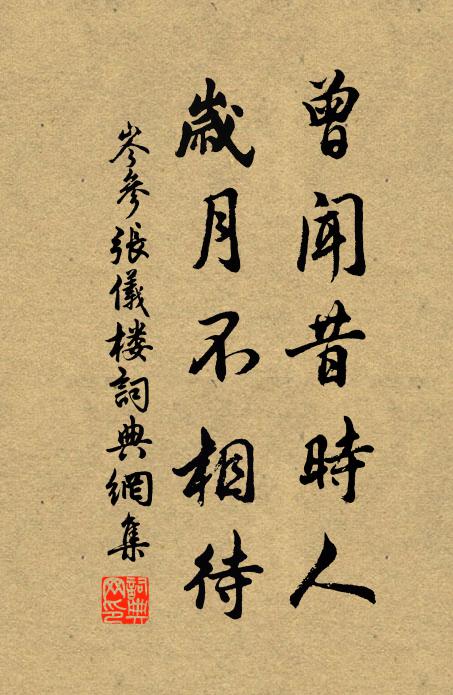 曾聞昔時人
歲月不相待
岑參張儀樓詞典網集
詞典
网印